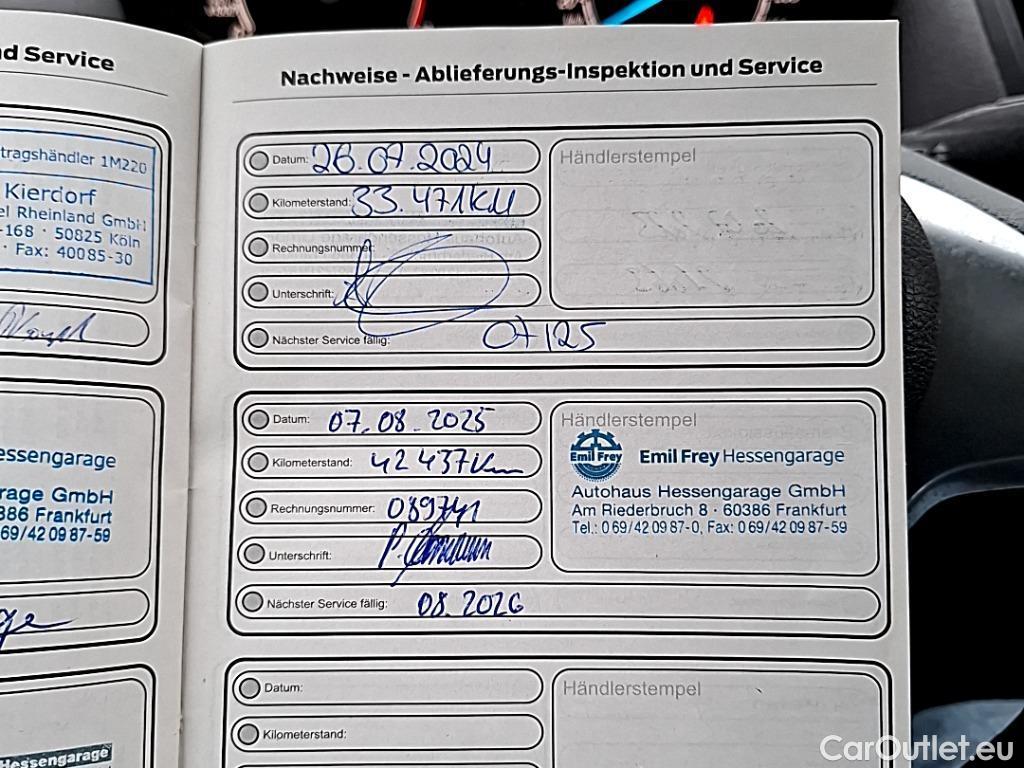 d Service
tragshändler 1M220
Kierdorf
el Rheinland GmbH
-168 · 50825 Köln
· Fax: 40085-30
essengarage
rage GmbH
386 Frankfurt
69/42 09 87-59
Hessengarage
Nachweise - Ablieferungs-Inspektion und Service
Datum: 26.07.2024
Kilometerstand: 33.471KM
Rechnungsnummer:
Unterschrift:
Nächster Service fällig: 07/25
Händlerstempel
Datum: 07.08.2025
Kilometerstand: 42 437 Km
Rechnungsnummer: 089741
Unterschrift:
Nächster Service fällig: 08.2026
Händlerstempel
Emil Frey
Emil Frey Hessengarage
Autohaus Hessengarage GmbH
Am Riederbruch 8 · 60386 Frankfurt
Tel.: 0 69/42 09 87-0, Fax: 0 69/42 09 87-59
Datum:
Kilometerstand:
Händlerstempel
CarOutlet.eu